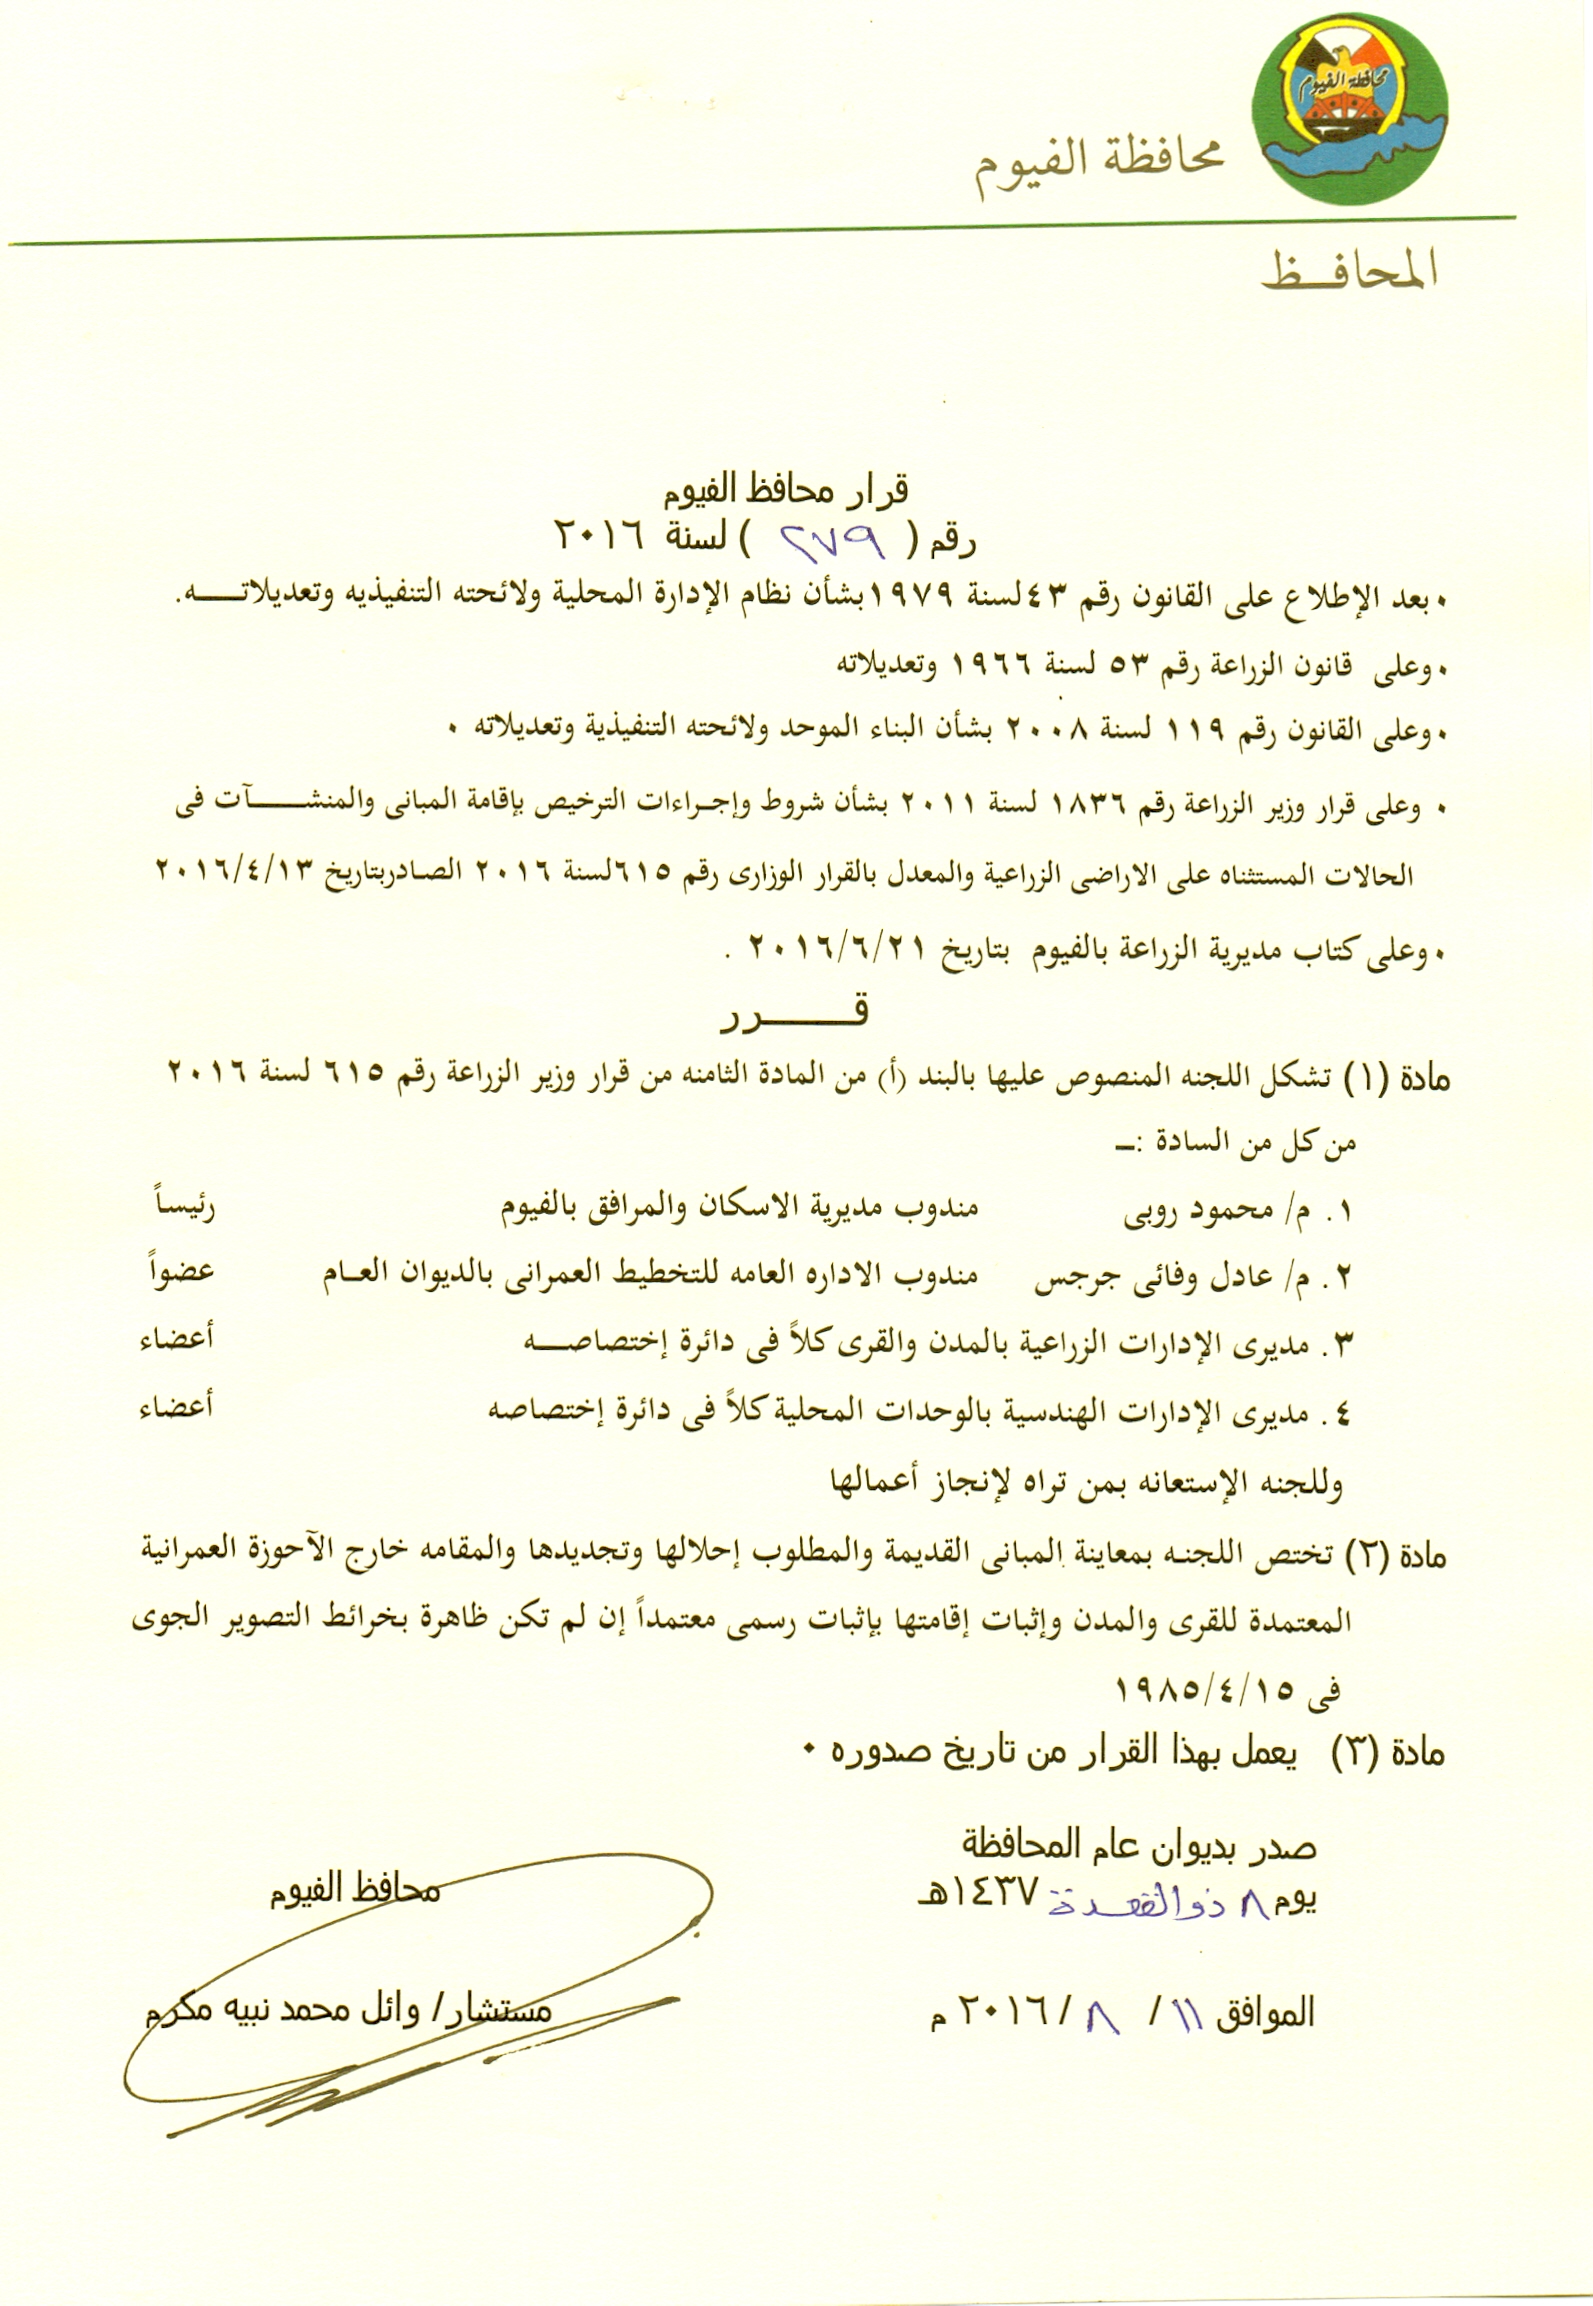 محافظة الفيوم
محافظة الفيوم
المحافــظ
قرار محافظ الفيوم
رقم ( ٢٧٩ ) لسنة ٢٠١٦
• بعد الإطلاع على القانون رقم ٤٣ لسنة ١٩٧٩ بشأن نظام الإدارة المحلية ولائحته التنفيذيه وتعديلاتـــه.
• وعلى قانون الزراعة رقم ٥٣ لسنة ١٩٦٦ وتعديلاته
• وعلى القانون رقم ١١٩ لسنة ٢٠٠٨ بشأن البناء الموحد ولائحته التنفيذية وتعديلاته ٠
• وعلى قرار وزير الزراعة رقم ١٨٣٦ لسنة ٢٠١١ بشأن شروط وإجراءات الترخيص بإقامة المبانى والمنشـــآت فى
الحالات المستثناه على الاراضى الزراعية والمعدل بالقرار الوزارى رقم ٦١٥ لسنة ٢٠١٦ الصادربتاريخ ٢٠١٦/٤/١٣
• وعلى كتاب مديرية الزراعة بالفيوم بتاريخ ٢٠١٦/٦/٢١ .
قـــــرر
مادة (١) تشكل اللجنه المنصوص عليها بالبند (أ) من المادة الثامنه من قرار وزير الزراعة رقم ٦١٥ لسنة ٢٠١٦
من كل من السادة :ـ
١. م/ محمود روبى مندوب مديرية الاسكان والمرافق بالفيوم رئيساً
٢. م/ عادل وفائى جرجس مندوب الاداره العامه للتخطيط العمرانى بالديوان العـام عضواً
٣. مديرى الإدارات الزراعية بالمدن والقرى كلاً فى دائرة إختصاصـــه أعضاء
٤. مديرى الإدارات الهندسية بالوحدات المحلية كلاً فى دائرة إختصاصه أعضاء
وللجنه الإستعانه بمن تراه لإنجاز أعمالها
مادة (٢) تختص اللجنه بمعاينة المبانى القديمة والمطلوب إحلالها وتجديدها والمقامه خارج الآحوزة العمرانية
المعتمدة للقرى والمدن وإثبات إقامتها بإثبات رسمى معتمداً إن لم تكن ظاهرة بخرائط التصوير الجوى
فى ١٩٨٥/٤/١٥
مادة (٣) يعمل بهذا القرار من تاريخ صدوره ٠
صدر بديوان عام المحافظة
يوم ٨ ذو القعدة ١٤٣٧هـ
محافظ الفيوم
الموافق ١١ / ٨ / ٢٠١٦ م
مستشار/ وائل محمد نبيه مكرم